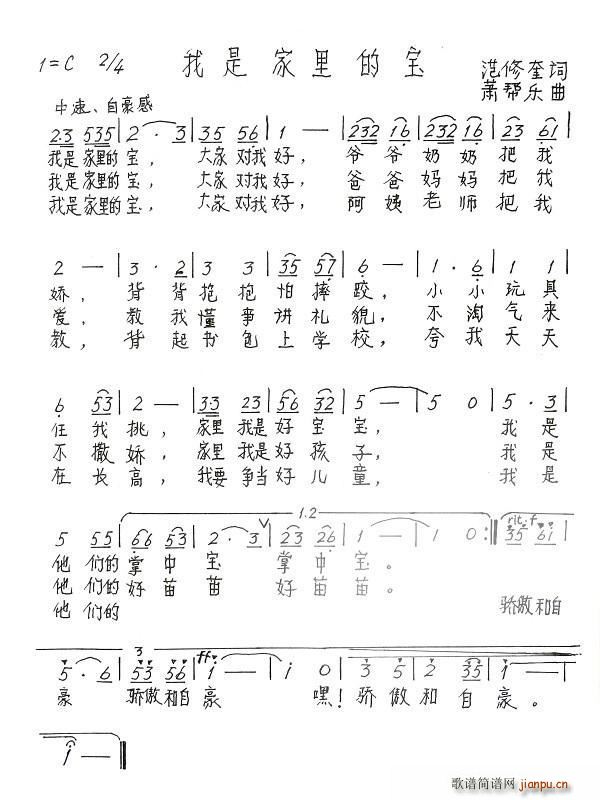 1=C 2/4 我是家里的宝 范修奎词
萧帮乐曲
中速、自豪感
2·3 535 | 2 · 3 | 35 56 | 1 — | 232 16 | 232 16 | 5 23 | 61 |
我是家里的宝, 大家对我好, 爷爷奶奶把我
我是家里的宝, 大家对我好, 爸爸妈妈把我
我是家里的宝, 大家对我好, 阿姨老师把我
2 — | 3 · 2 | 3 3 | 35 57 | 6 — | 1 · 6 | 1 2 |
娇, 背背抱抱怕摔跤, 小小玩具
爱, 教我懂事讲礼貌, 不淘气来
教, 背起书包上学校, 夸我天天
6 53 | 2 — | 33 23 | 56 32 | 5 — | 5 0 | 5 · 3 |
任我挑, 家里我是好宝宝, 我是
不撒娇, 家里我是好孩子, 我是
在长高, 我要争当好儿童, 我是
1.2 rit. f
5 55 | 66 53 | 2 · 3 | 23 26 | 1 — | 1 0 :| 35 61 |
他们的掌中宝 掌中宝。
他们的好苗苗 好苗苗。
他们的 骄傲和自
3 ff
5 · 6 | 53 56 | 1 — | i 0 | 3 5 | 2 35 | 1 — |
豪 骄傲和自豪 嘿!骄傲和自豪。
i — ‖
歌谱简谱网
jianpu.cn